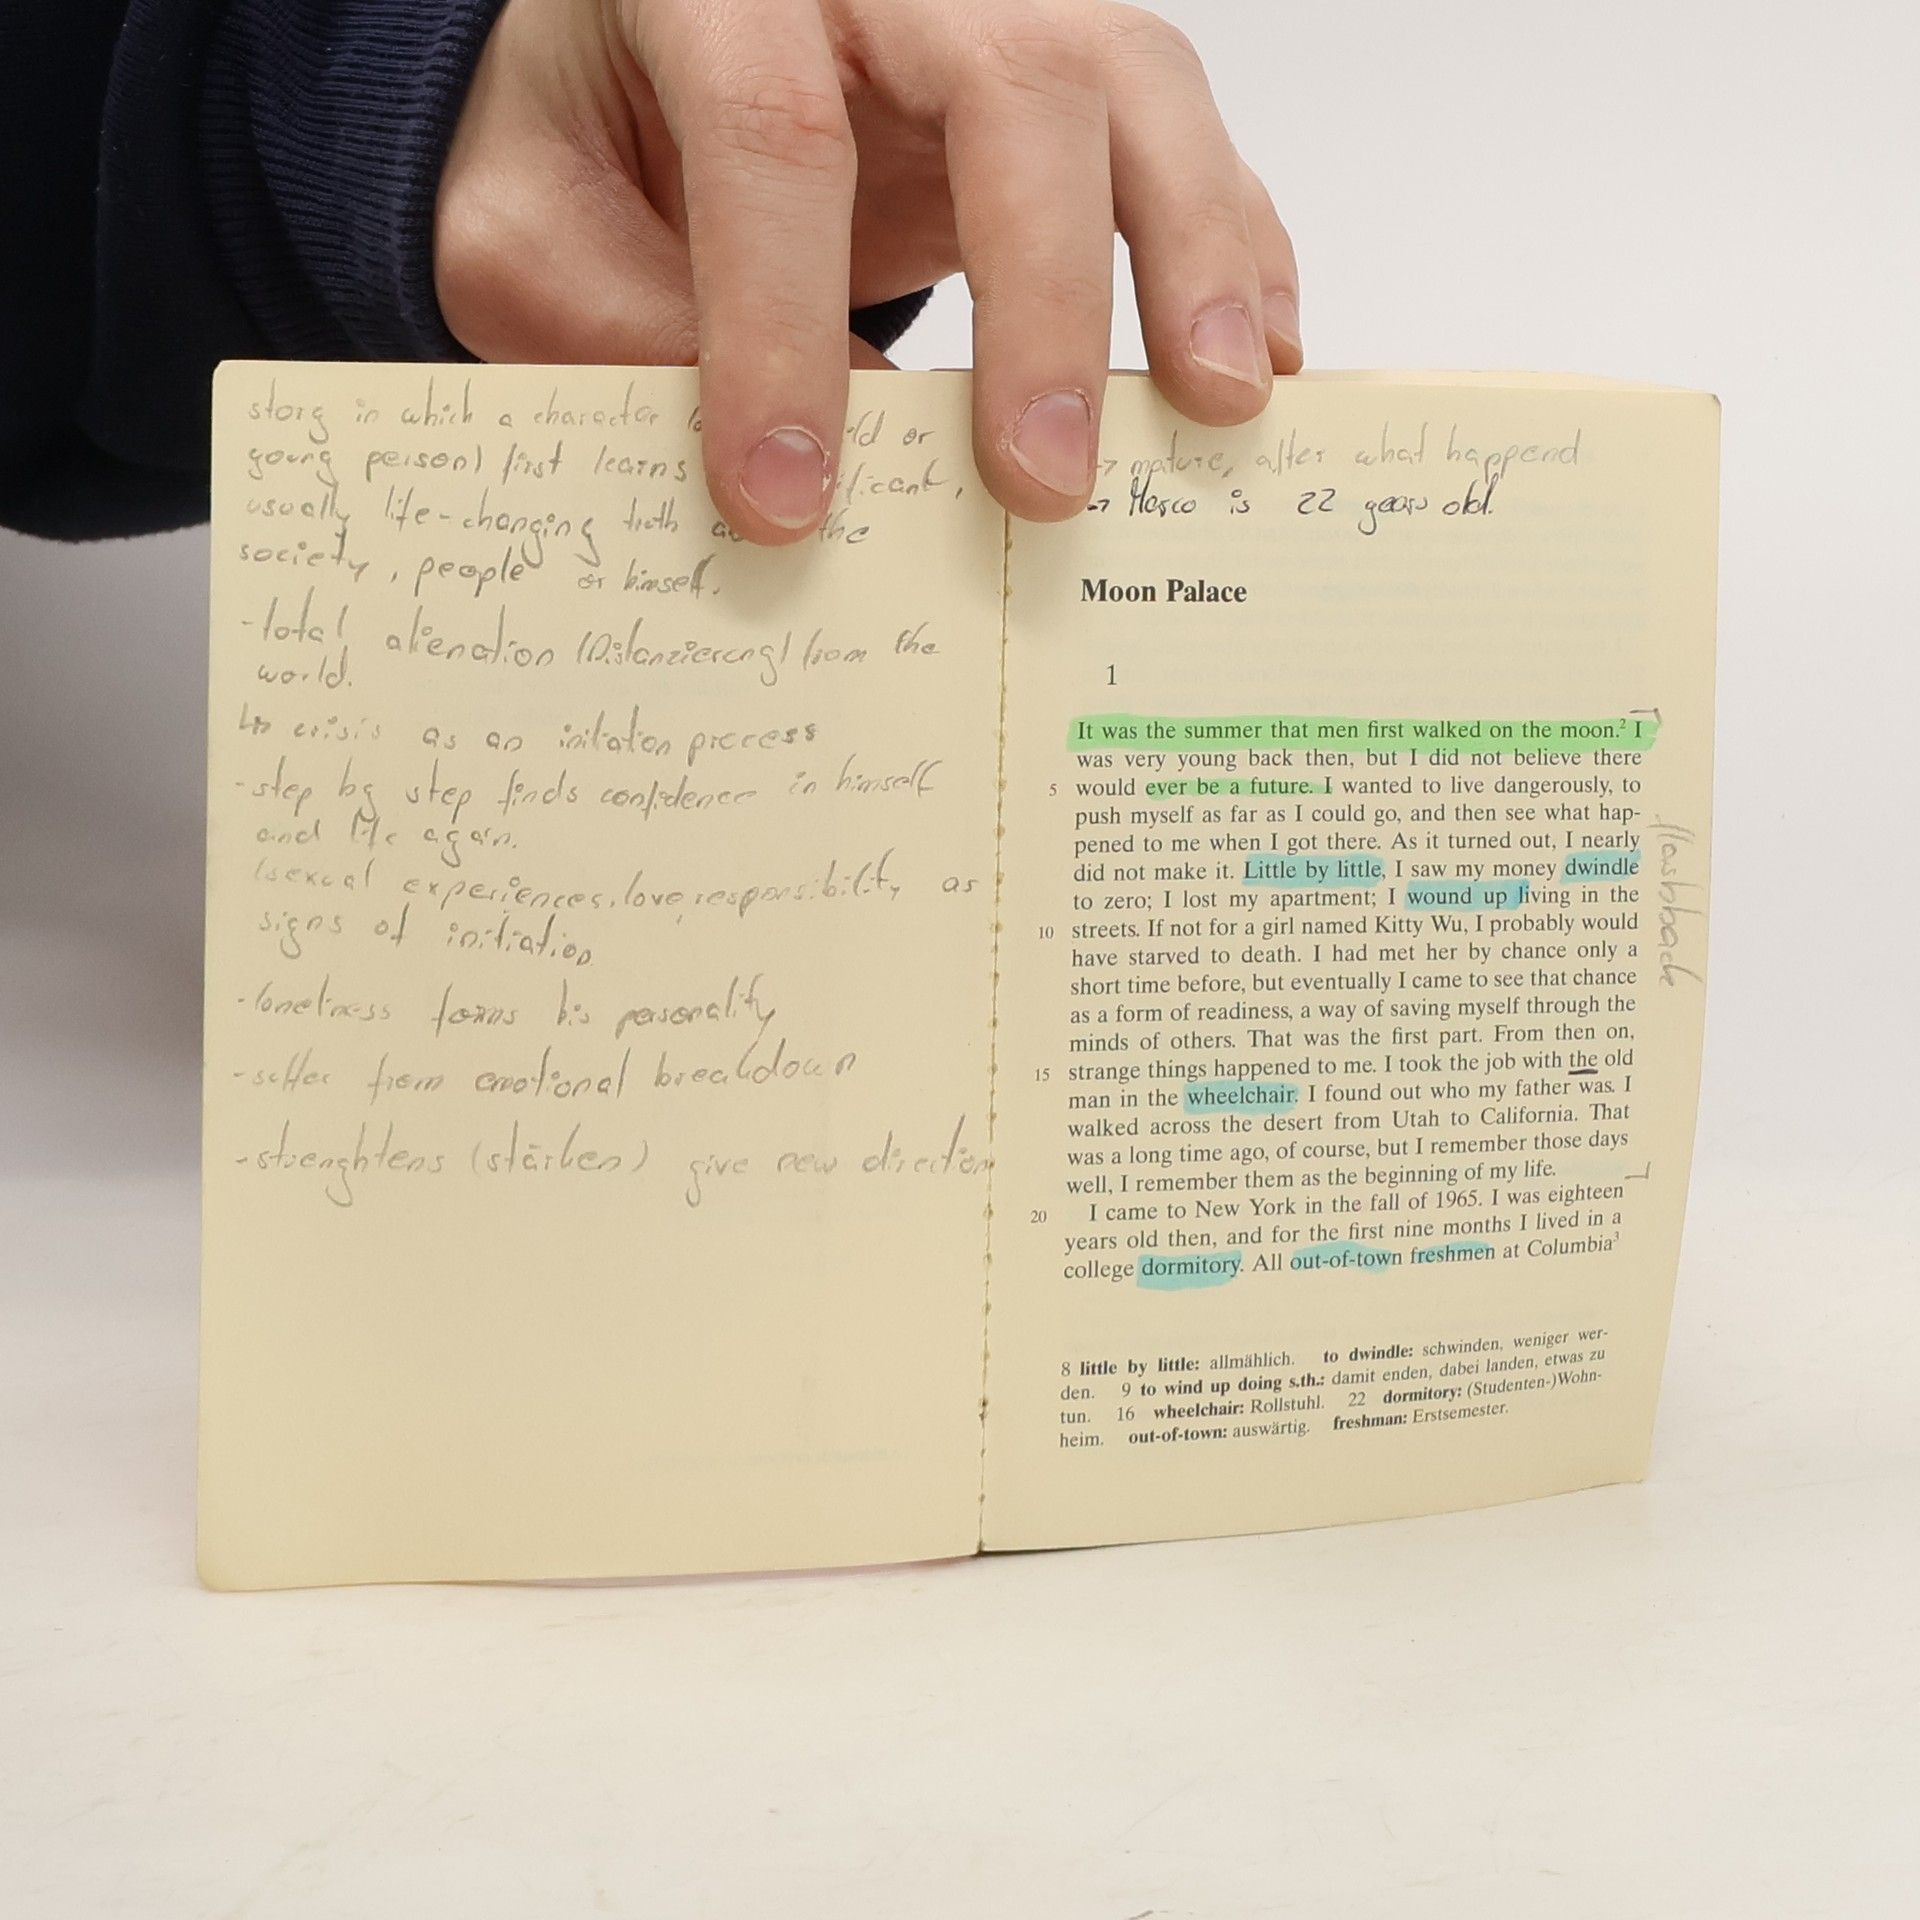 story in which a character or
young person) first learns
usually life-changing truth the
society, people or himself.
- total alienation (Distanzierung) from the
world.
↳ crisis as an initiaton process
- step by step finds confidence in himself
and life again.
(sexual experiences, love, responsibility as
signs of initiation
- loneliness forms his personality
- suffer from emotional breakdown
- strenghtens (stärken) give new direction
→ mature, after what happend
→ Marco is 22 years old.
Moon Palace
1
It was the summer that men first walked on the moon.² I
was very young back then, but I did not believe there
5 would ever be a future. I wanted to live dangerously, to
push myself as far as I could go, and then see what hap-
pened to me when I got there. As it turned out, I nearly
did not make it. Little by little, I saw my money dwindle
to zero; I lost my apartment; I wound up living in the
10 streets. If not for a girl named Kitty Wu, I probably would
have starved to death. I had met her by chance only a
short time before, but eventually I came to see that chance
as a form of readiness, a way of saving myself through the
minds of others. That was the first part. From then on,
15 strange things happened to me. I took the job with the old
man in the wheelchair. I found out who my father was. I
walked across the desert from Utah to California. That
was a long time ago, of course, but I remember those days
well, I remember them as the beginning of my life.
20 I came to New York in the fall of 1965. I was eighteen
years old then, and for the first nine months I lived in a
college dormitory. All out-of-town freshmen at Columbia³
flashback
8 little by little: allmählich. to dwindle: schwinden, weniger wer-
den. 9 to wind up doing s.th.: damit enden, dabei landen, etwas zu
tun. 16 wheelchair: Rollstuhl. 22 dormitory: (Studenten-)Wohn-
heim. out-of-town: auswärtig. freshman: Erstsemester.